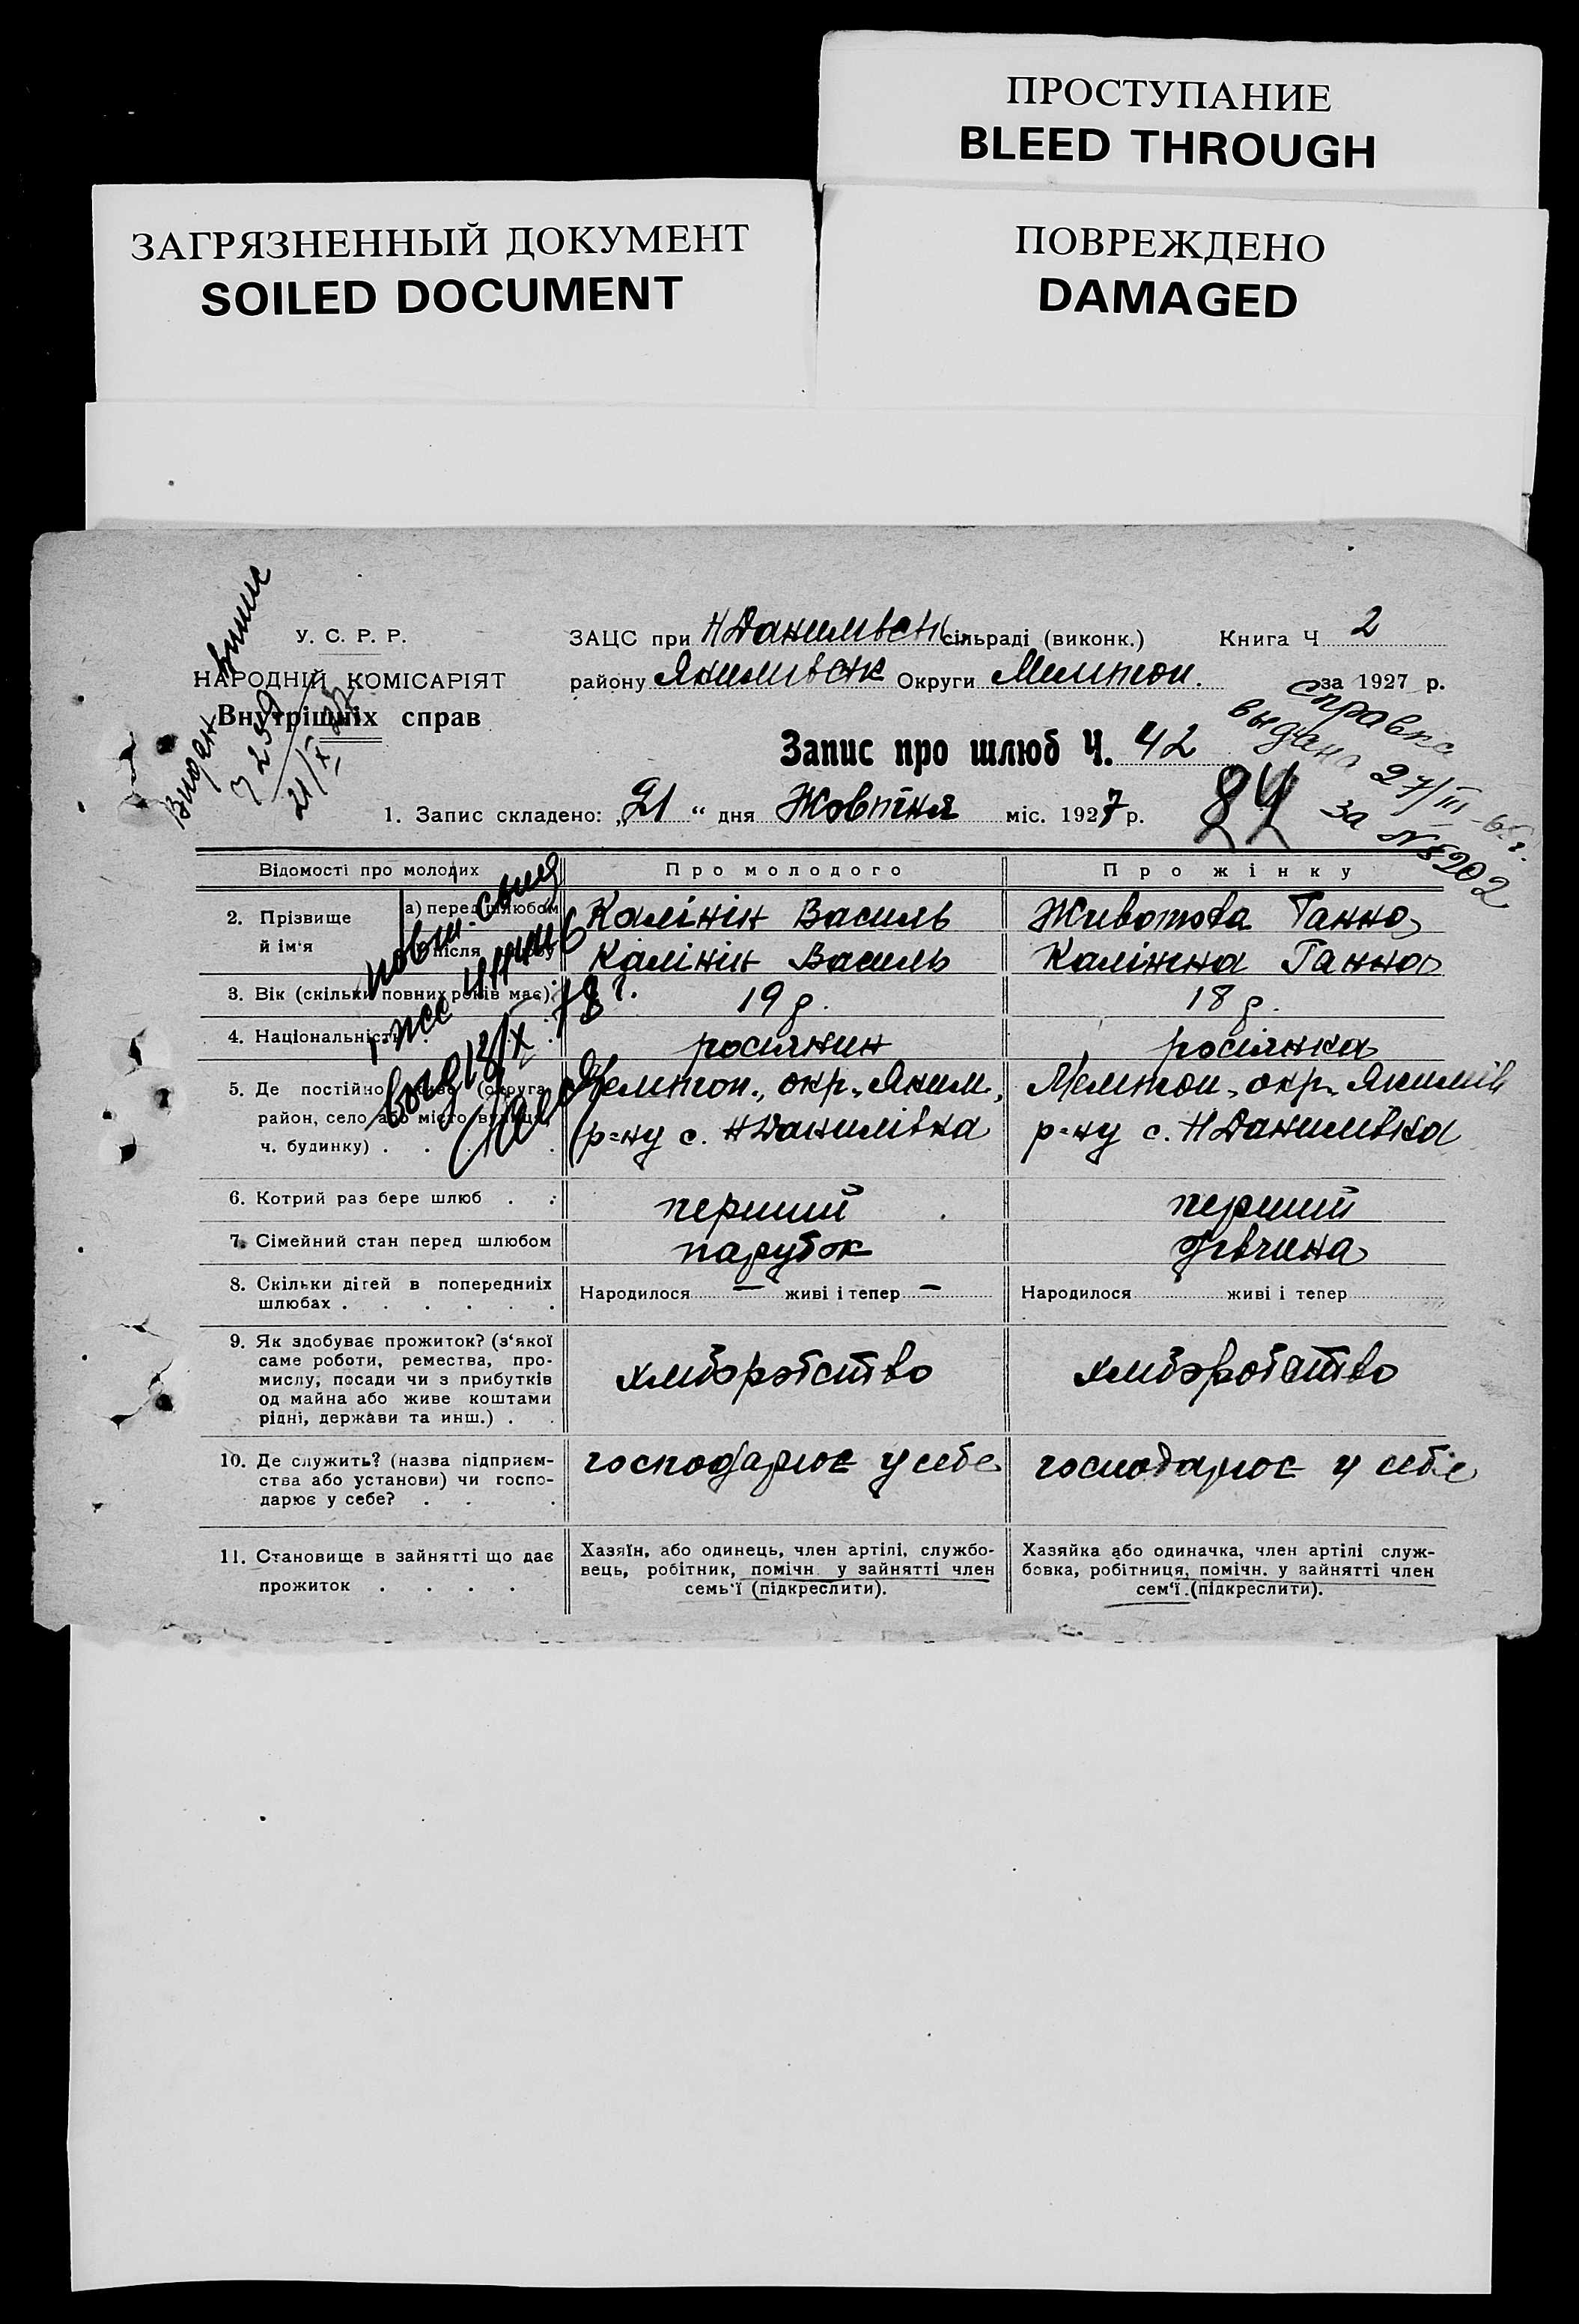 ПРОСТУПАНИЕ
BLEED THROUGH
ЗАГРЯЗНЕННЫЙ ДОКУМЕНТ
SOILED DOCUMENT
ПОВРЕЖДЕНО
DAMAGED
У. С. Р. Р.
НАРОДНІЙ КОМІСАРІЯТ
Внутрішніх справ
Видан випис
21/X
ЗАЦС при Н Данилівськ сільраді (виконк.) Книга Ч 2
району Якимівськ Округи Мелітоп. за 1927 р.
справка
выдана 27/III
за № 8202
Запис про шлюб Ч. 42
84
1. Запис складено: „21“ дня Жовтня міс. 1927 р.
Відомості про молодих Про молодого Про жінку
2. Прізвище й ім'я а) перед шлюбом Калінін Василь Животова Ганна
після Калінін Василь Калініна Ганна
3. Вік (скільки повних років має) 19 р. 18 р.
4. Національність росіянин росіянка
5. Де постійно живе (округа, Мелітоп., окр., Яким. Мелітоп. окр. Якимів
район, село або місто вулиця, р-ну с. Н Данилівка р-ну с. Н Данилівка
ч. будинку) . . . .
6. Котрий раз бере шлюб . . перший перший
7. Сімейний стан перед шлюбом парубок дівчина
8. Скільки дітей в попередніх Народилося — живі і тепер — Народилося живі і тепер
шлюбах . . . . . .
9. Як здобуває прожиток? (з'якої
саме роботи, ремества, про-
мислу, посади чи з прибутків хліборобство хліборобство
од майна або живе коштами
рідні, держави та инш.) . .
10. Де служить? (назва підприєм- господарює у себе господарює у себе
ства або установи) чи госпо-
дарює у себе? . . .
11. Становище в зайнятті що дає Хазяїн, або одинець, член артілі, службо- Хазяйка або одиначка, член артілі служ-
прожиток . . . . вець, робітник, помічн. у зайнятті член бовка, робітниця, помічн. у зайнятті член
семь'ї (підкреслити). сем'ї (підкреслити).